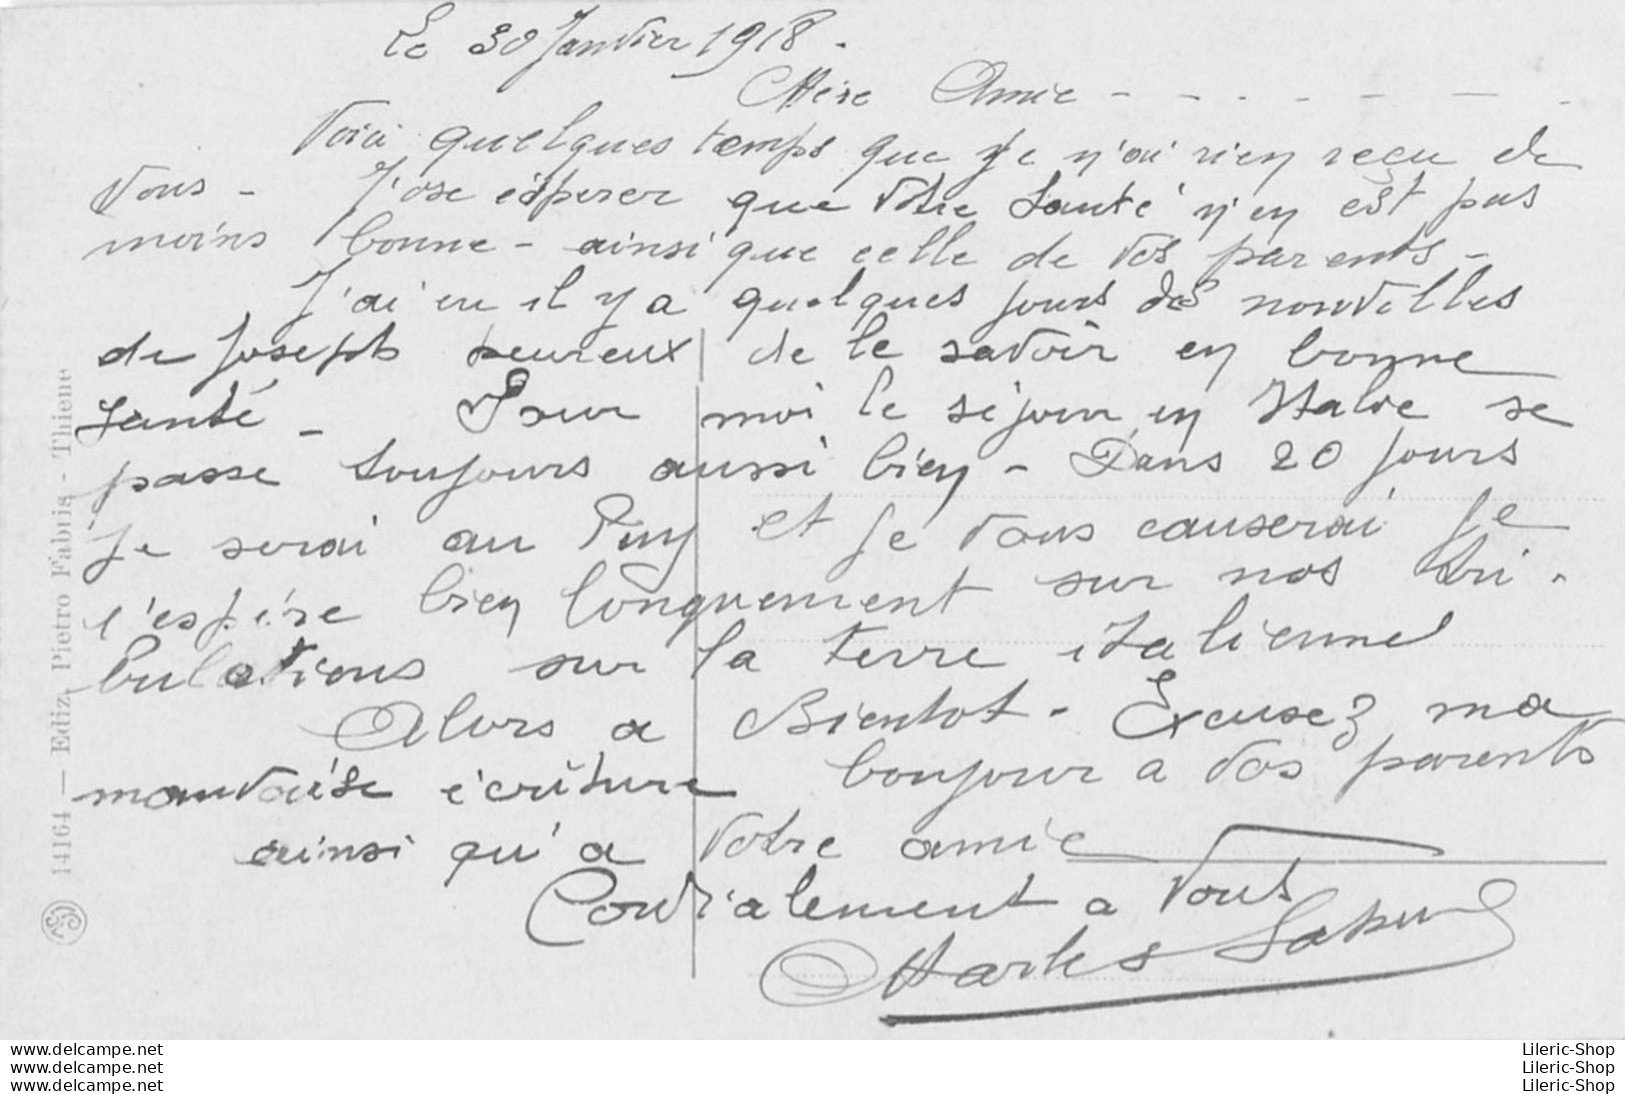 Le 30 Janvier 1918.
Chère Amie - - - - - - -
Voici quelques temps que je n'ai rien reçu de
vous - J'ose éspérer que votre Santé n'en est pas
moins bonne - ainsi que celle de vos parents -
J'ai eu il y a quelques jours des nouvelles
de Joseph heureux de le savoir en bonne
santé - Pour moi le séjour en Italie se
passe toujours aussi bien - Dans 20 jours
je serai au Puy et je vous causerai je
l'espére bien longuement sur nos tri-
bulations sur la terre italienne
Alors a Bientot - Excusez ma
mauvaise écriture bonjour a vos parents
ainsi qu'a votre amie
Cordialement a vous
Charles
14164 — Ediz. Pietro Fabris - Thiene
www.delcampe.net
www.delcampe.net
www.delcampe.net
Lileric-Shop
Lileric-Shop
Lileric-Shop